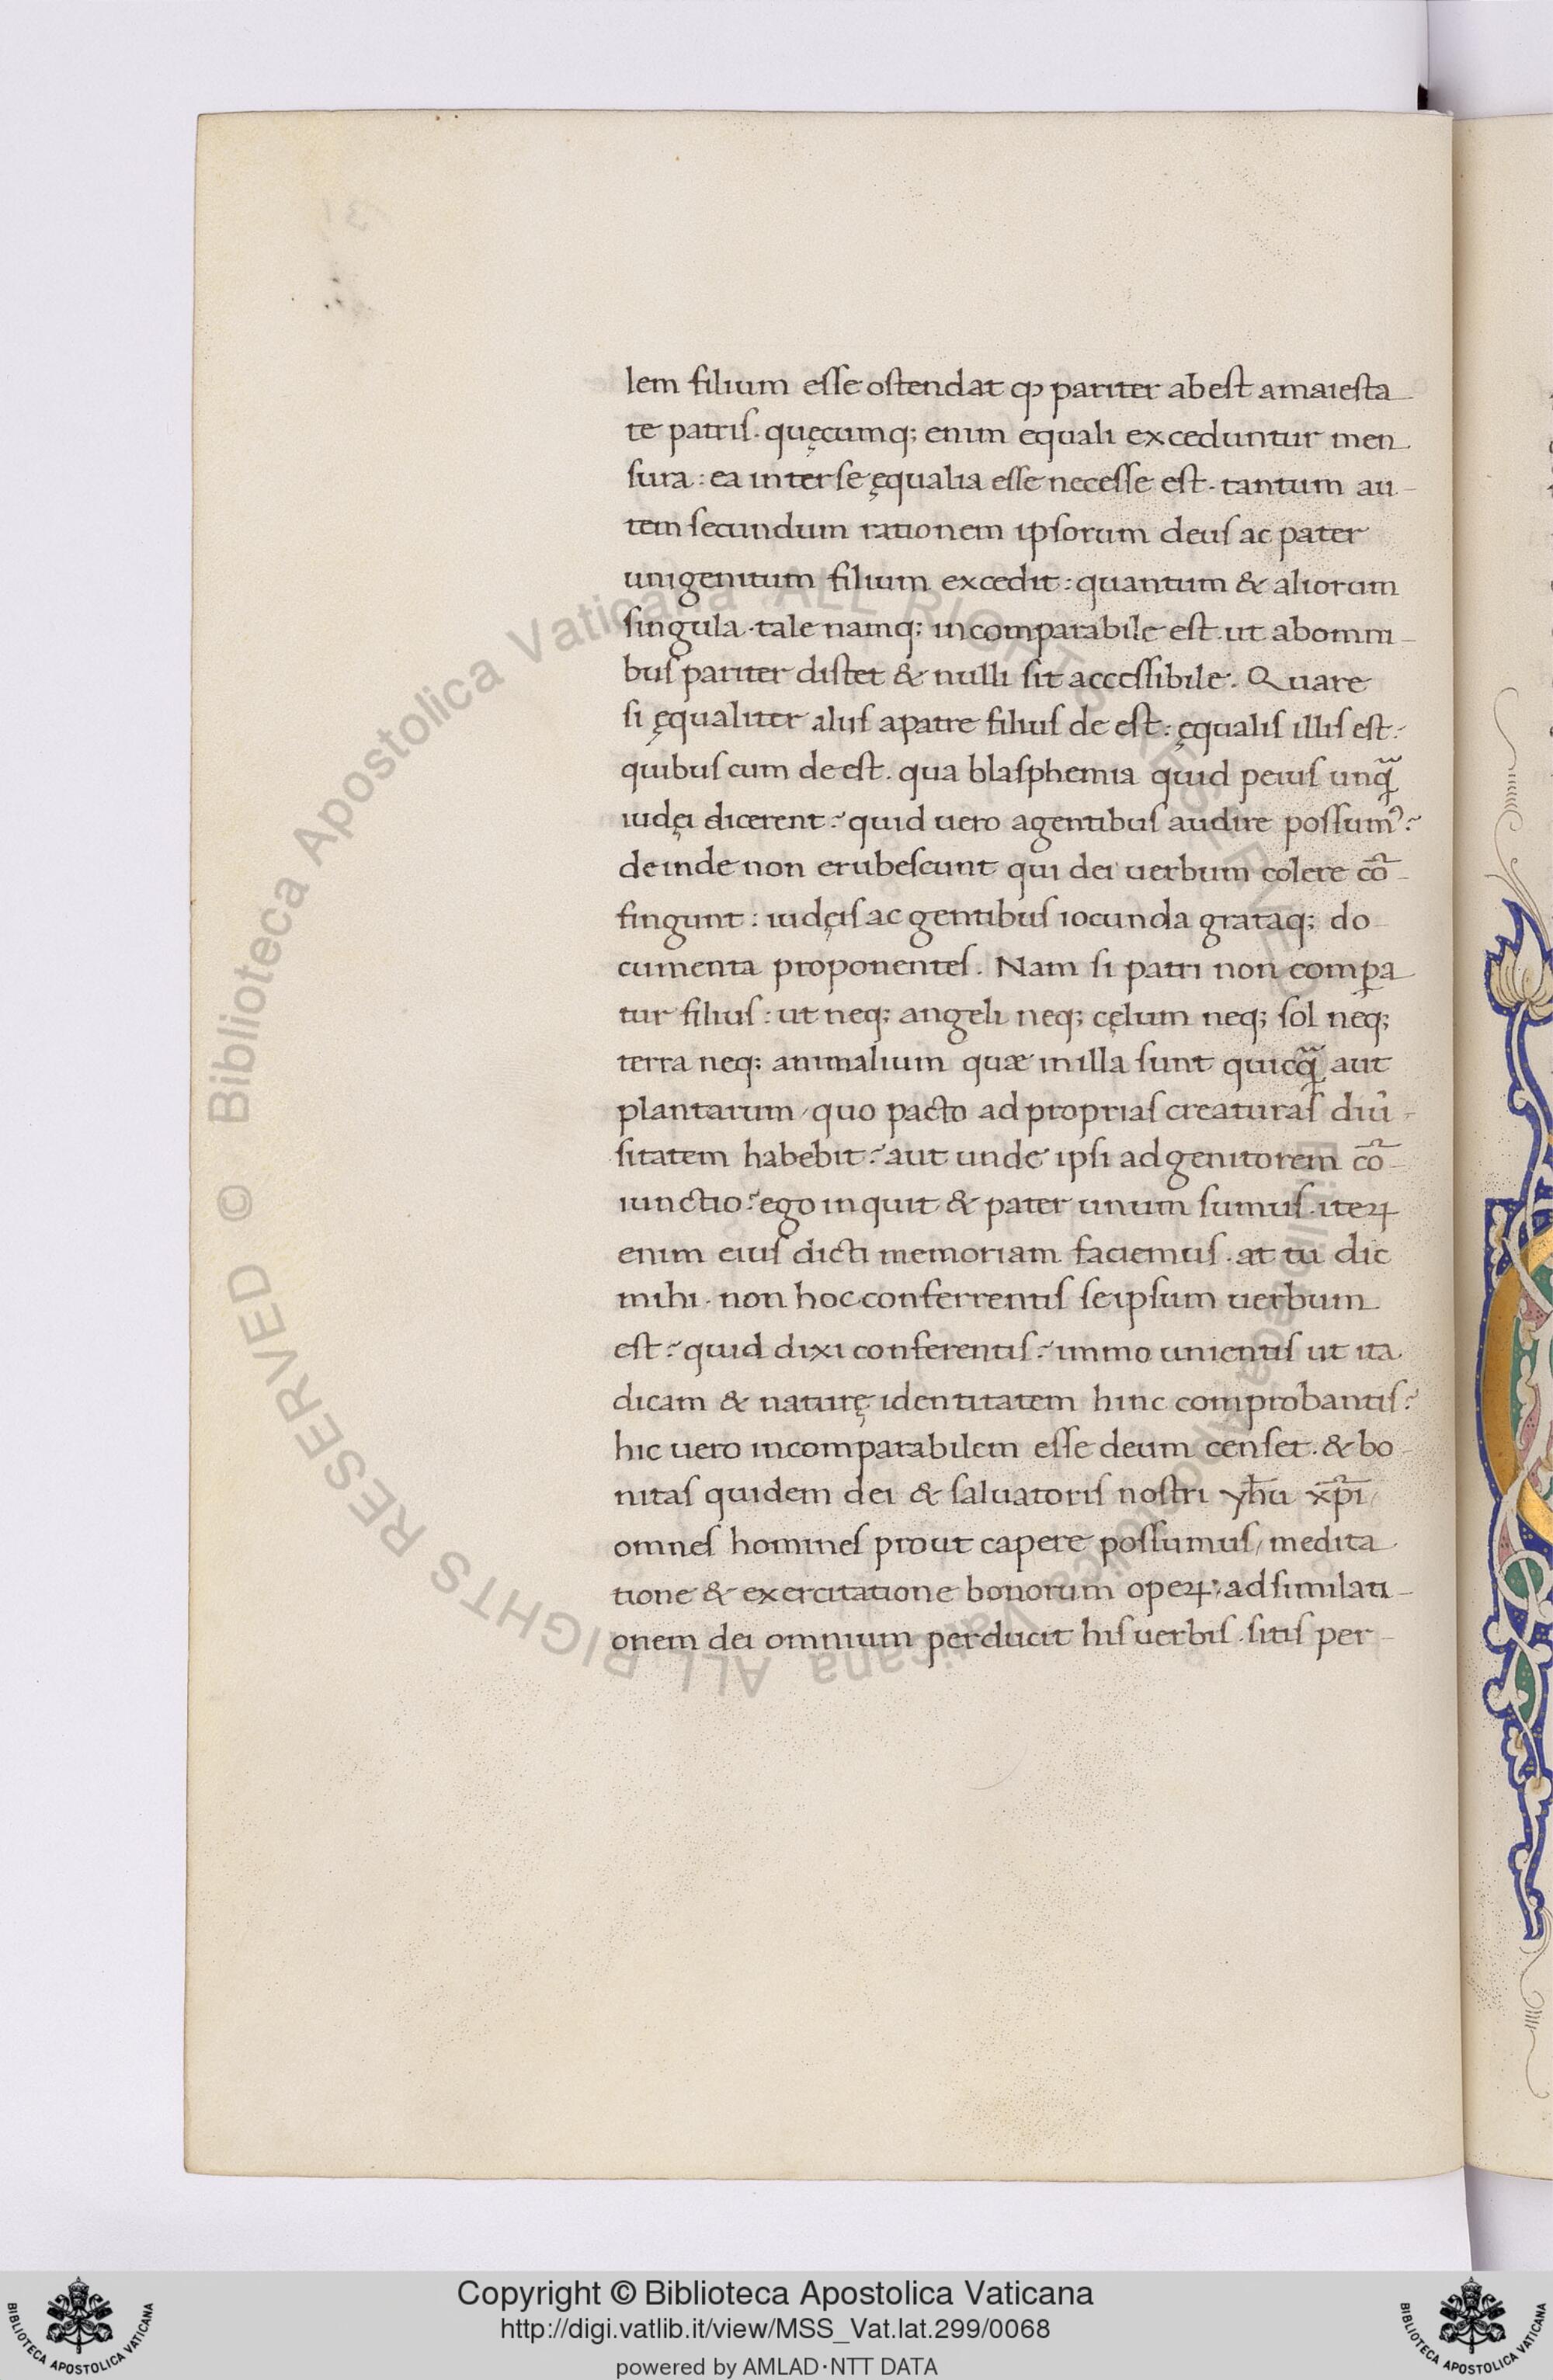 lem filium esse ostendat ꝙ pariter abest a maiesta
te patris. quęcumq; enim equali exceduntur men
sura: ea inter se ęqualia esse necesse est. tantum au-
tem secundum rationem ipsorum deus ac pater
unigenitum filium excedit: quantum & aliorum
singula. tale namq; incomparabile est. ut ab omni-
bus pariter distet & nulli sit accessibile. Quare
si ęqualiter aliis a patre filius de est: ęqualis illis est:
quibus cum de est. qua blasphemia quid peius unq̃
iudęi dicerent? quid uero a gentibus audire possumꝰ?
deinde non erubescunt qui dei uerbum colere cō-
fingunt: iudęis ac gentibus iocunda grataq; do-
cumenta proponentes. Nam si patri non compa
tur filius: ut neq; angeli neq; cęlum neq; sol neq;
terra neq; animalium quæ in illa sunt quicq̃ aut
plantarum, quo pacto ad proprias creaturas diũ-
sitatem habebit? aut unde ipsi ad genitorem cō-
iunctio? ego inquit & pater unum sumus. iteꝝ
enim eius dicti memoriam faciemus. at tu dic
mihi. non hoc conferrentis se ipsum uerbum
est? quid dixi conferentis? immo unientis ut ita
dicam & naturę identitatem hinc comprobantis?
hic uero incomparabilem esse deum censet. & bo-
nitas quidem dei & saluatoris nostri yħu xp̄i
omnes homines prout capere possumus, medita
tione & exercitatione bonorum opeꝝ: ad similati-
onem dei omnium perducit his uerbis. sitis per-
© Biblioteca Apostolica Vaticana ALL RIGHTS RESERVED
Copyright © Biblioteca Apostolica Vaticana
http://digi.vatlib.it/view/MSS_Vat.lat.299/0068
powered by AMLAD·NTT DATA
BIBLIOTECA APOSTOLICA VATICANA
BIBLIOTECA APOSTOLICA VATICANA